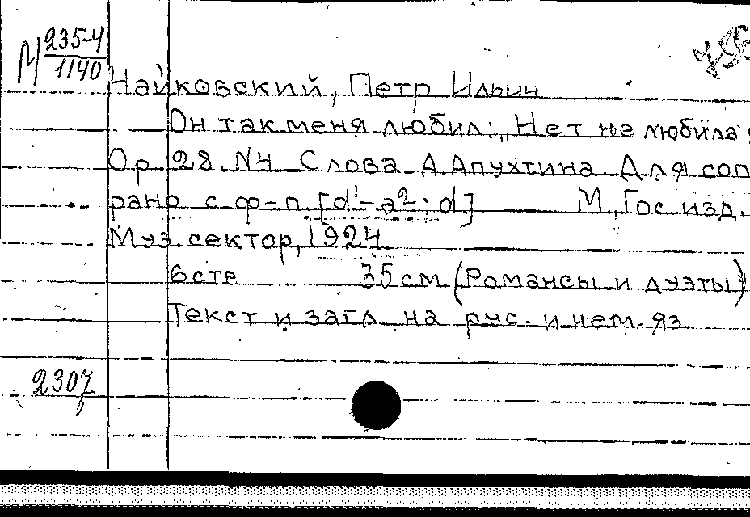 М 235-4
1140
Чайковский, Петр Ильич
Он так меня любил: „Нет не любила я
Ор. 28. N4 Слова А. Апухтина Для соп
рано с ф-п. [d'-a²; d] М., Гос. изд.
Муз. сектор, 1924
6 стр 35 см (Романсы и дуэты)
Текст и загл. на рус. и нем. яз
2307